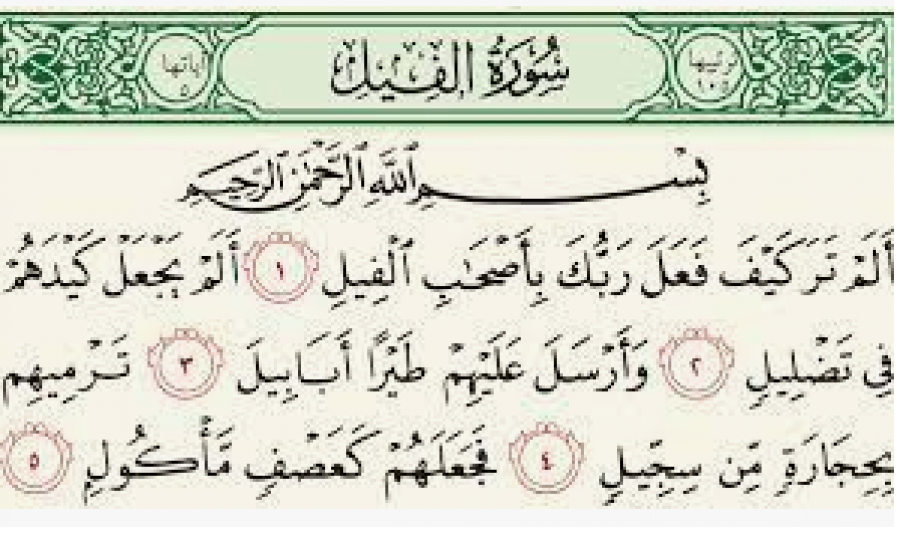 ترتيبها ١٠٥ سُورَةُ الفِيلِ آياتها ٥
بِسْمِ ٱللَّهِ ٱلرَّحْمَٰنِ ٱلرَّحِيمِ
أَلَمْ تَرَ كَيْفَ فَعَلَ رَبُّكَ بِأَصْحَٰبِ ٱلْفِيلِ ١ أَلَمْ يَجْعَلْ كَيْدَهُمْ
فِى تَضْلِيلٍ ٢ وَأَرْسَلَ عَلَيْهِمْ طَيْرًا أَبَابِيلَ ٣ تَرْمِيهِم
بِحِجَارَةٍ مِّن سِجِّيلٍ ٤ فَجَعَلَهُمْ كَعَصْفٍ مَّأْكُولٍ ٥